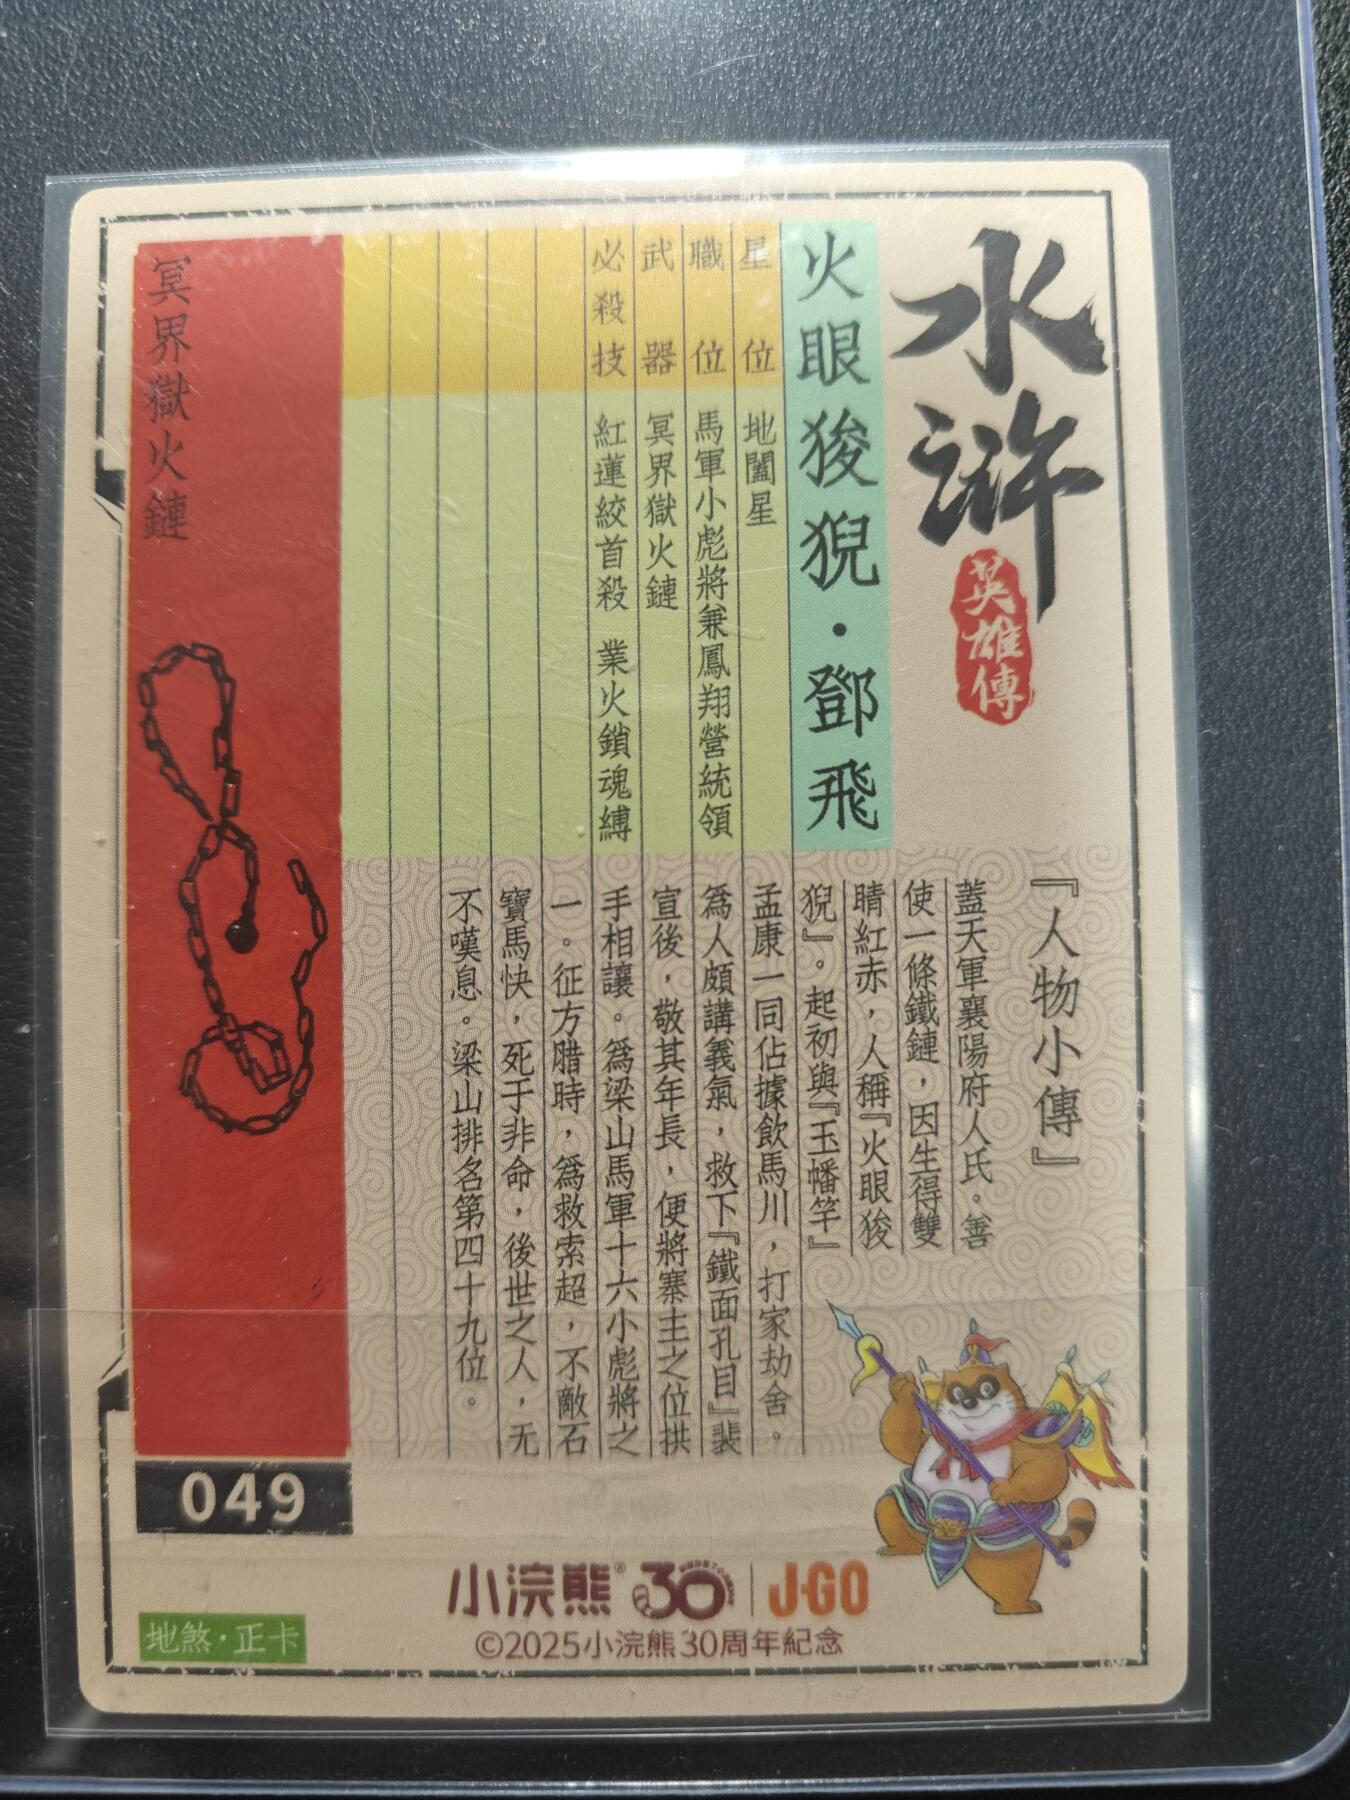 水滸
英雄傳
火眼狻猊·鄧飛
星位 地闔星
職位 馬軍小彪將兼鳳翔營統領
武器 冥界獄火鏈
必殺技 紅蓮絞首殺 業火鎖魂縛
『人物小傳』
蓋天軍襄陽府人氏。善
使一條鐵鏈，因生得雙
睛紅赤，人稱『火眼狻
猊』。起初與『玉幡竿』
孟康一同佔據飲馬川，打家劫舍。
為人頗講義氣，救下『鐵面孔目』裴
宣後，敬其年長，便將寨主之位拱
手相讓。為梁山馬軍十六小彪將之
一。征方腊時，為救索超，不敵石
寶馬快，死于非命，後世之人，无
不嘆息。梁山排名第四十九位。
冥界獄火鏈
049
小浣熊® 30 J·GO
©2025小浣熊30周年紀念
地煞·正卡